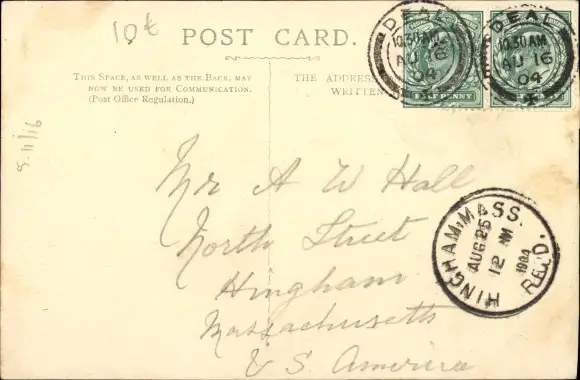 10¢
POST CARD.
THIS SPACE, AS WELL AS THE BACK, MAY
NOW BE USED FOR COMMUNICATION.
(Post Office Regulation.)
THE ADDRESS
WRITTEN
DEAL
10.30 AM
AU 16
04
HALFPENNY
DEAL
10.30 AM
AU 16
04
Mr A W Hall
North Street
Hingham
Massachusetts
U S America
HINGHAM, MASS.
AUG 25
12 M
1904
REC'D.